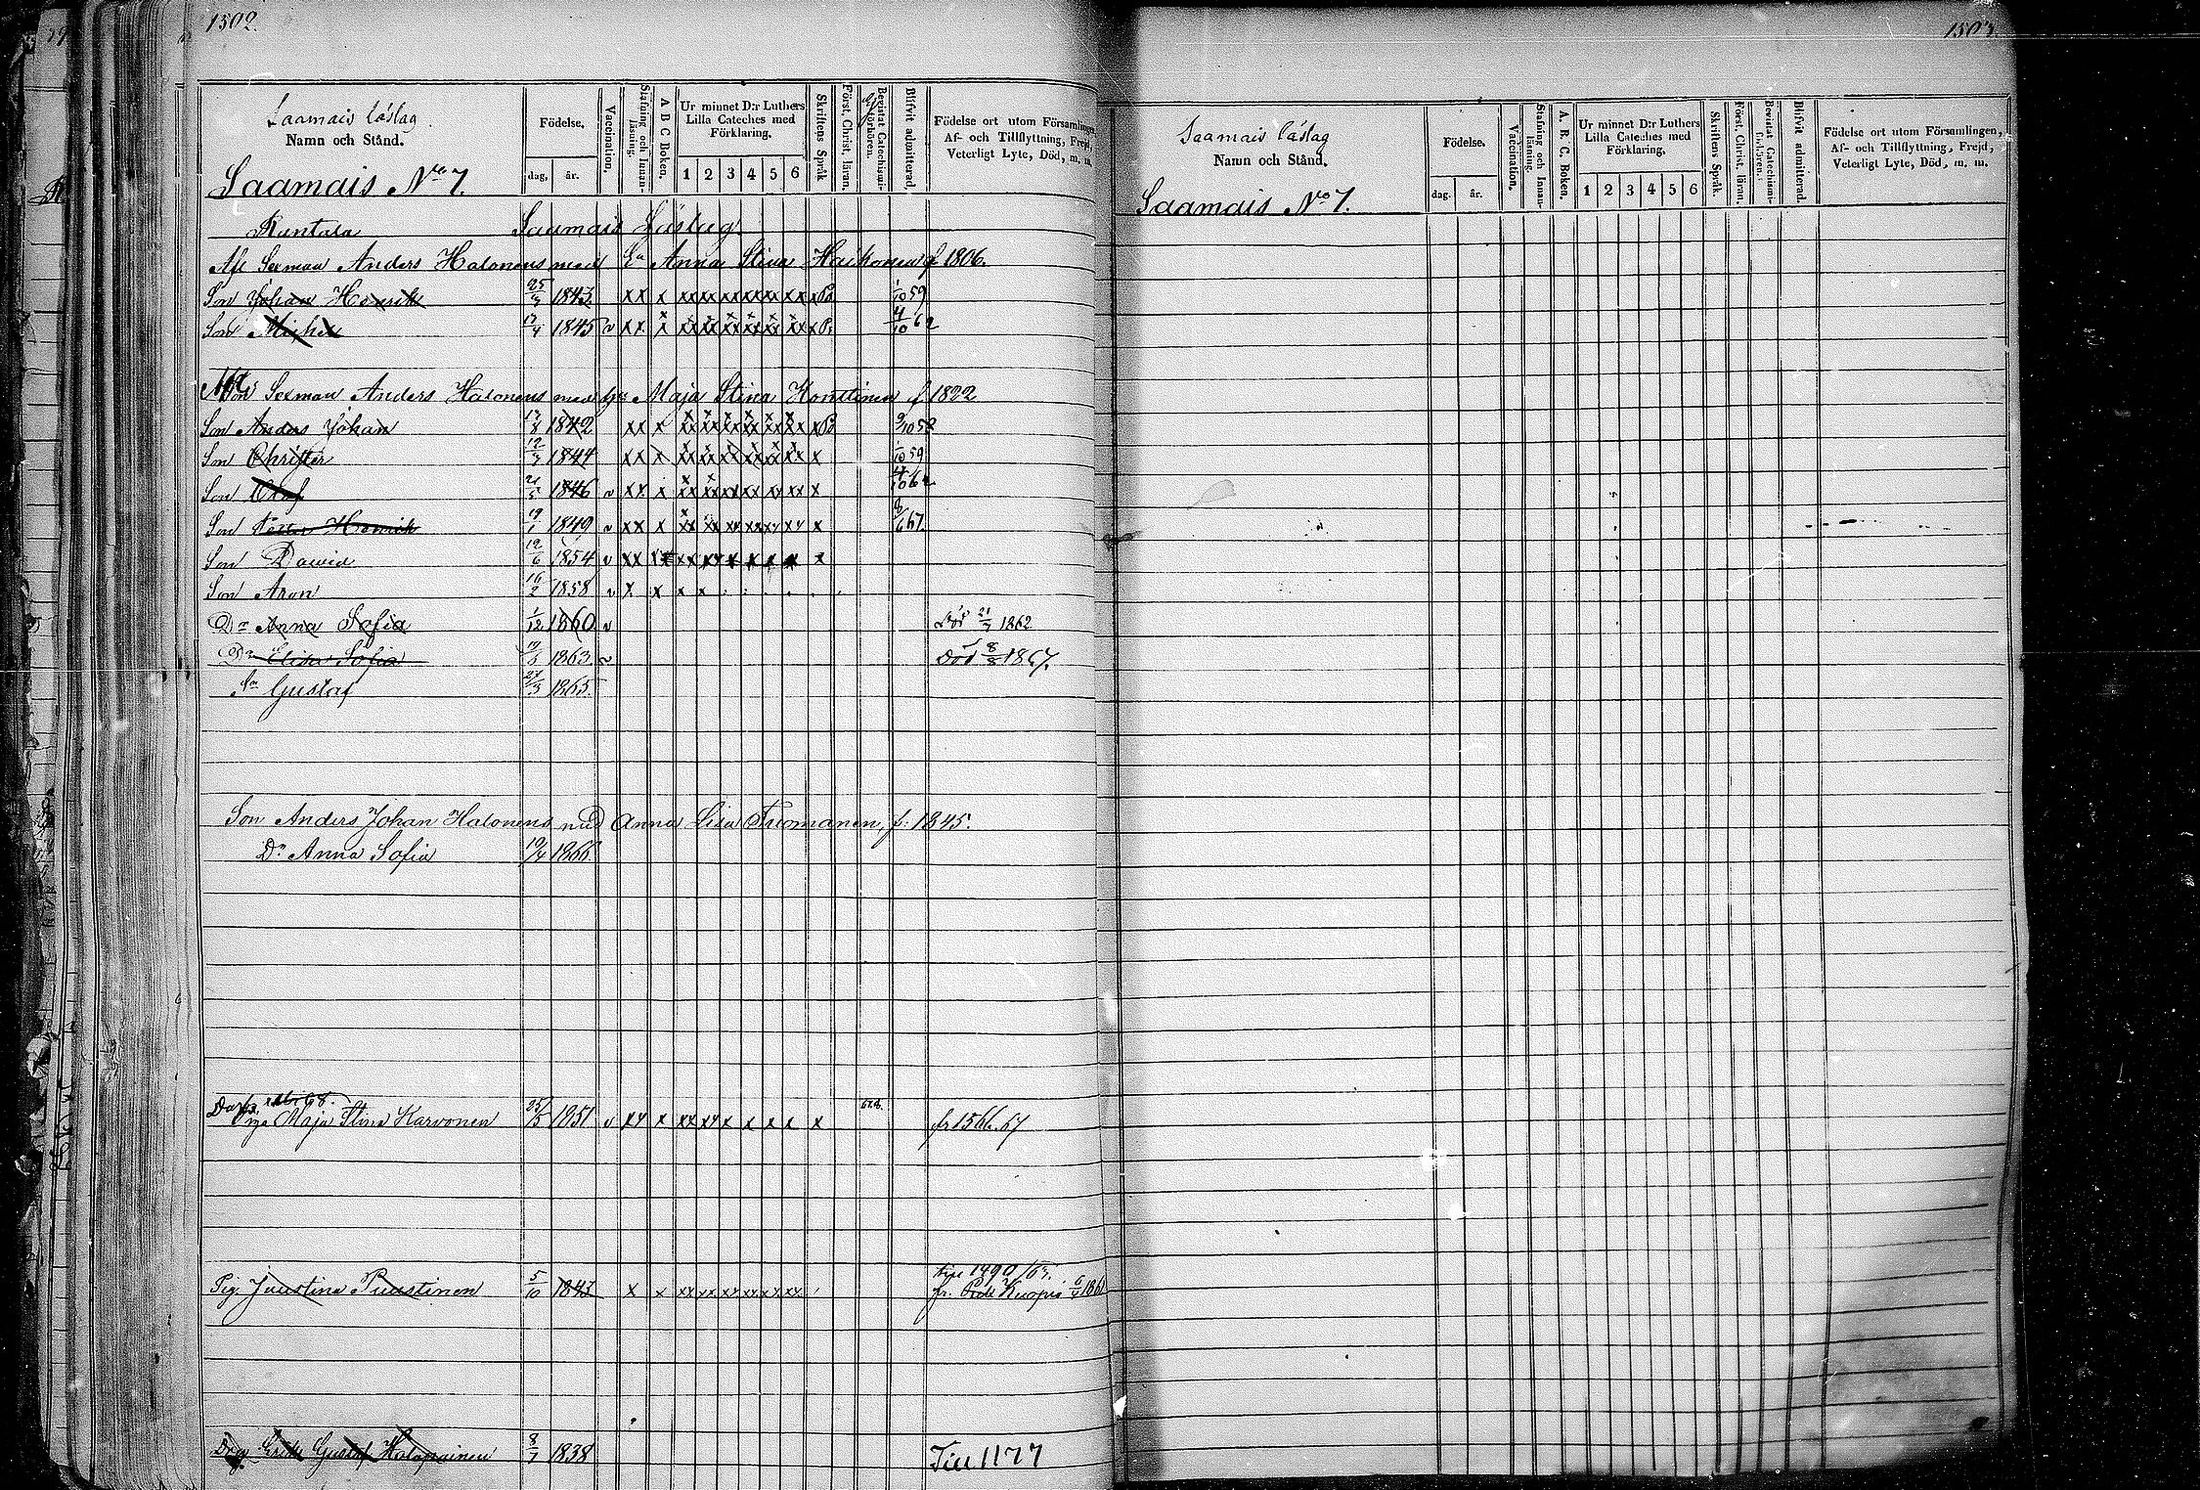 1502.
Saamais låslag.
Namn och Stånd.
Födelse.
dag. år.
Vaccination.
Stafning och Innan-läsning.
A B C Boken.
Ur minnet D:r Luthers
Lilla Cateches med
Förklaring.
1 2 3 4 5 6
Skriftens Språk
Först. Christ. läran.
Bevistat Catechismi-förhören.
Blifvit admitterad.
Födelse ort utom Församlingen,
Af- och Tillflyttning, Frejd,
Veterligt Lyte, Död, m. m.
Saamais No 7.
Rantala Saamais
Afl Sexman Anders Halonens med Anna Stina f 1806.
Son Johan Henrik 25/3 1843. xx x xx xx xx xx xx xx x 1/10 59
Son Michel 17/4 1845 v xx x xx xx xx xx xx xx x 4/10 62
Sexman Anders Halonens med Maja Stina Konttinen f 1822
Son Anders Johan 17/8 1842 xx x xx xx xx xx xx xx x 9/10 58
Son Christer 12/3 1844 xx x xx xx xx xx xx xx x 1/10 59
Son Olof 21/5 1846 v xx x xx xx xx xx xx xx x
Son Petter Henrik 19/1 1849 v xx x xx xx xx xx xx xx x 67.
Son David 12/6 1854 v xx x xx xx x x x x x
Son Aron 16/2 1858 v x x x x
Dr Anna Sofia 1/12 1860 v Död 21/7 1862
Dr Elisa Sofia 1863. v Död 8/8 1867.
Sn Gustaf 27/3 1865.
Son Anders Johan Halonens med Anna Lisa Tuomanen, f: 1845.
Dr Anna Sofia 19/4 1866.
68.
Piga Maja Stina Karvonen 25/5 1851 v xx x xx xx x x x x x fr 1566. 67
Pig. Juustina Puustinen 5/10 1843 x x xx xx xx xx xx xx
1490/63.
fr. Kuopio 6/4 1861
Drg Erik Gustaf Halonainen 8/7 1838 Till 1177
1503.
Saamais låslag
Namn och Stånd.
Födelse.
dag. år.
Vaccination.
Stafning och Innan-läsning.
A. B. C. Boken.
Ur minnet D:r Luthers
Lilla Cateches med
Förklaring.
1 2 3 4 5 6
Skriftens Språk.
Först. Christ. läran.
Bevistat Catechismi-förhören.
Blifvit admitterad.
Födelse ort utom Församlingen,
Af- och Tillflyttning, Frejd,
Veterligt Lyte, Död, m. m.
Saamais No 7.